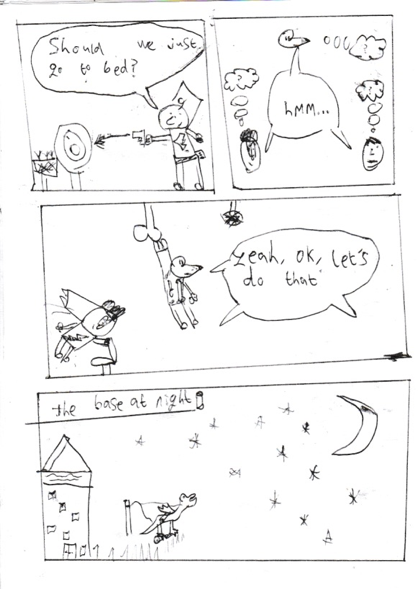 Should we just
go to bed?
?
?
?
hMM...
Yeah, OK, Let's
do that
the base at night